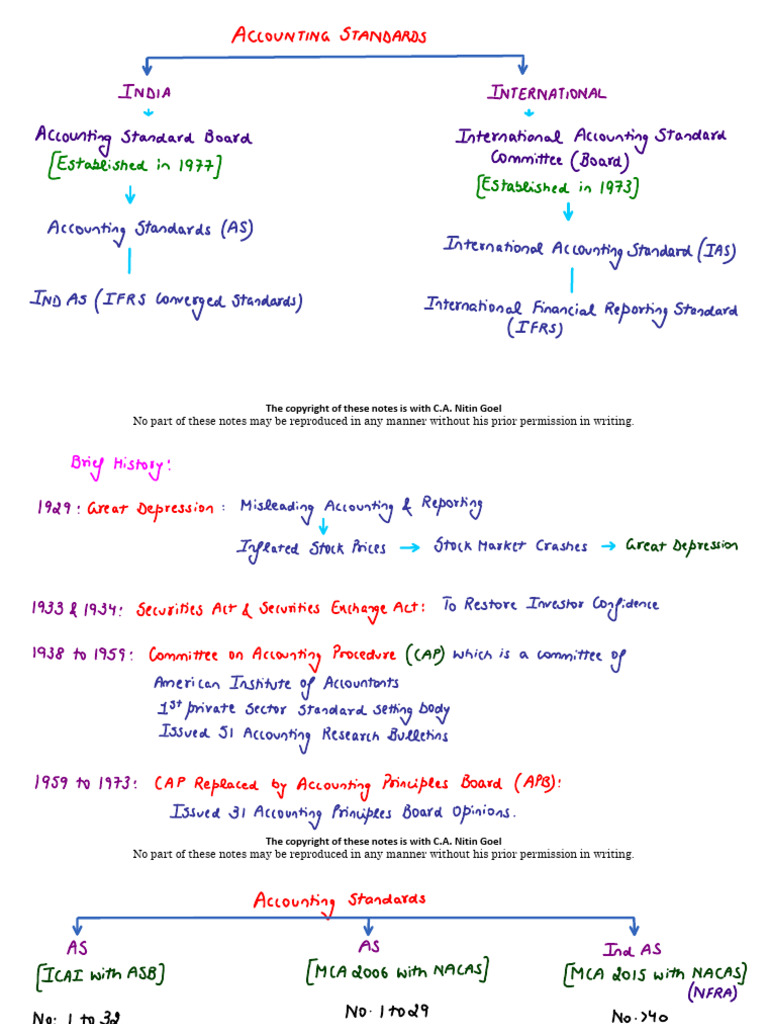 ACCOUNTING STANDARDS
INDIA
INTERNATIONAL
Accounting Standard Board
[Established in 1977]
International Accounting Standard
Committee (Board)
[Established in 1973]
Accounting Standards (AS)
International Accounting Standard (IAS)
IND AS (IFRS Converged Standards)
International Financial Reporting Standard
(IFRS)
The copyright of these notes is with C.A. Nitin Goel
No part of these notes may be reproduced in any manner without his prior permission in writing.
Brief History:
1929: Great Depression: Misleading Accounting & Reporting
Inflated Stock Prices → Stock Market Crashes → Great Depression
1933 & 1934: Securities Act & Securities Exchange Act: To Restore Investor Confidence
1938 to 1959: Committee on Accounting Procedure (CAP) which is a committee of
American Institute of Accountants
1st private Sector Standard Setting body
Issued 51 Accounting Research Bulletins
1959 to 1973: CAP Replaced by Accounting Principles Board (APB):
Issued 31 Accounting Principles Board Opinions.
The copyright of these notes is with C.A. Nitin Goel
No part of these notes may be reproduced in any manner without his prior permission in writing.
Accounting Standards
AS
AS
Ind AS
[ICAI with ASB]
[MCA 2006 with NACAS]
[MCA 2015 with NACAS]
(NFRA)
No. 1 to 32
No. 1 to 29
No. >40